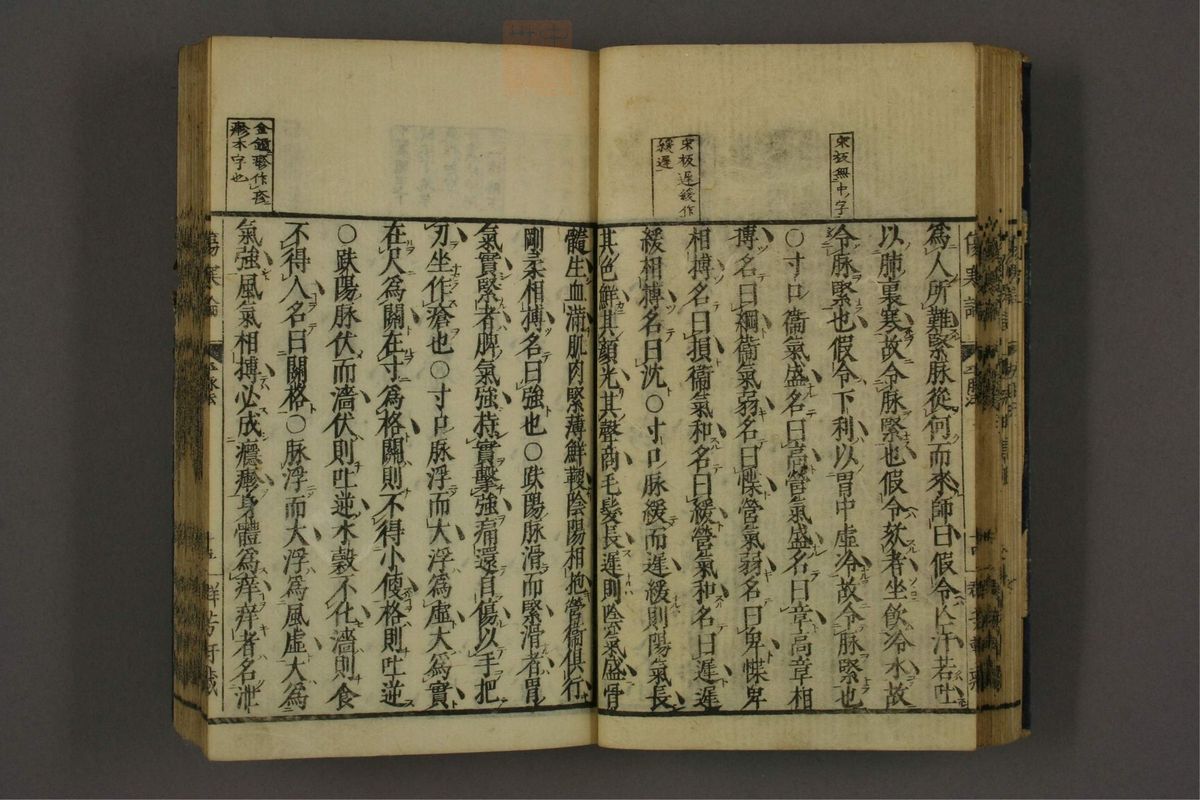 宋板無中字
宋板遲緩作
緩遲
爲人所難緊脉從何而來師曰假令亡汗若吐
以肺裏寒故令脉緊也假令欬者坐飮冷水故
令脉緊也假令下利以胃中虛冷故令脉緊也
○寸口衞氣盛名曰高營氣盛名曰章高章相
搏名曰綱衞氣弱名曰惵營氣弱名曰卑惵卑
相搏名曰損衞氣和名曰緩營氣和名曰遲遲
緩相搏名曰沈○寸口脉緩而遲緩則陽氣長
其色鮮其顏光其聲商毛髮長遲則陰氣盛骨
金鑑
本字也
髓生血滿肌肉緊薄鮮鞕陰陽相抱營衞俱行
剛柔相搏名曰強也○趺陽脉滑而緊滑者胃
氣實緊者脾氣強持實擊強痛還自傷以手把
刃坐作瘡也○寸口脉浮而大浮爲虛大爲實
在尺爲關在寸爲格關則不得小便格則吐逆
○趺陽脉伏而濇伏則吐逆水穀不化濇則食
不得入名曰關格○脉浮而大浮爲風虛大爲
氣強風氣相搏必成癮疹身體爲痒痒者名泄
傷寒論